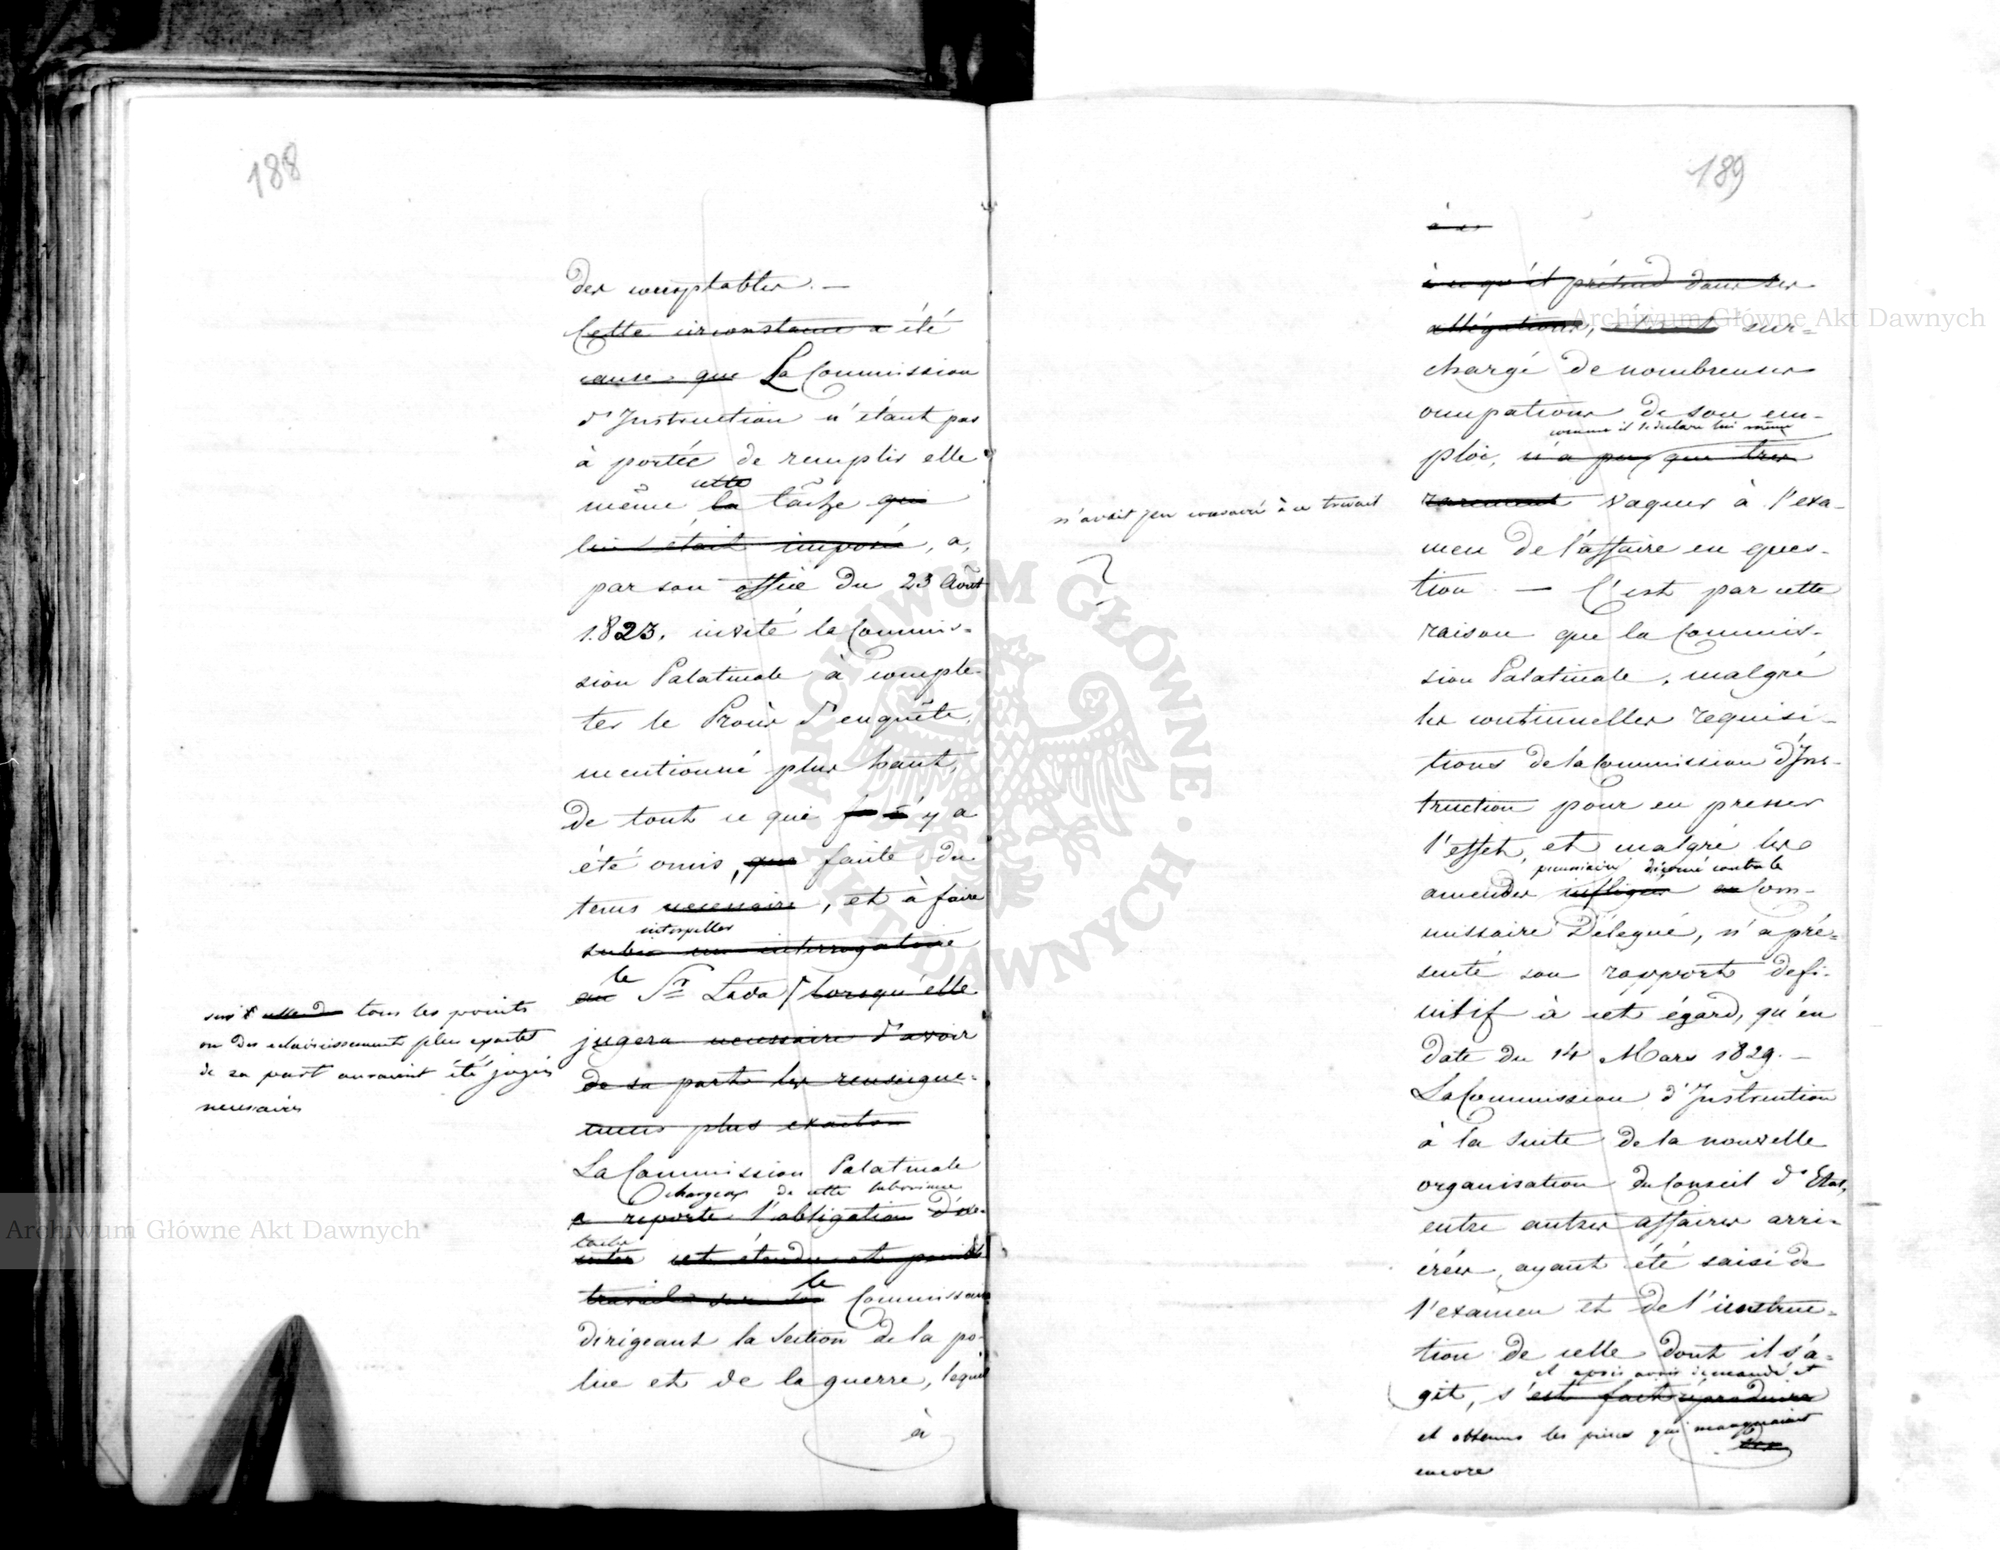 188
des comptables. —
Cette circonstance a été
cause que La Commission
d'Instruction n'étant pas
à portée de remplir elle
cette
même la tâche qui
lui était imposée, a,
par son office du 23 Août
1823. invité la Commis-
sion Palatinale à complé-
ter le Procès d'enquête,
mentionné plus haut,
de tout ce qui y a
été omis, que faute du
tems necessaire, et à faire
interpeller
subir un interrogatoire
le
au Sr Lada lorsqu'elle
jugera necessaire d'avoir
de sa part les renseigne-
mens plus exacts
sur tous les points
où des eclaircissements plus exacts
de sa part auraient été jugés
necessaires
La Commission Palatinale
chargea de cette
a reporté l'obligation d'exé-
tache
cuter cet étendu et penible
le
travail sur le Commissaire
dirigeant la Section de la po-
lice et de la guerre, lequel
à
189
à ce
à ce qu'il prétend dans ses
allégations, étant sur-
chargé de nombreuses
occupations de son em-
comme il le déclare lui même
ploi, n'a pu que très
rarement vaquer à l'exa-
n'avait pu consacré à ce travail
men de l'affaire en ques-
tion. — C'est par cette
raison que la Commis-
sion Palatinale, malgré
les continuelles requisi-
tions de la Commission d'Ins-
truction pour en presser
l'effet, et malgré les
pecuniaires décerné contre le
amendes infligées au Com-
missaire Délegué, n'a pré-
senté son rapport défi-
nitif à cet égard, qu'en
date du 14 Mars 1829. —
La Commission d'Instruction
à la suite de la nouvelle
organisation du Conseil d'Etat,
entre autres affaires arri-
érées, ayant été saisi de
l'examen et de l'instruc-
tion de celle dont il s'a-
et après avoir demandé et
git, s'est fait réproduire
et obtenus les pièces qui manquaient
encore
Archiwum Główne Akt Dawnych
Archiwum Główne Akt Dawnych
ARCHIWUM GŁÓWNE · AKT DAWNYCH ·